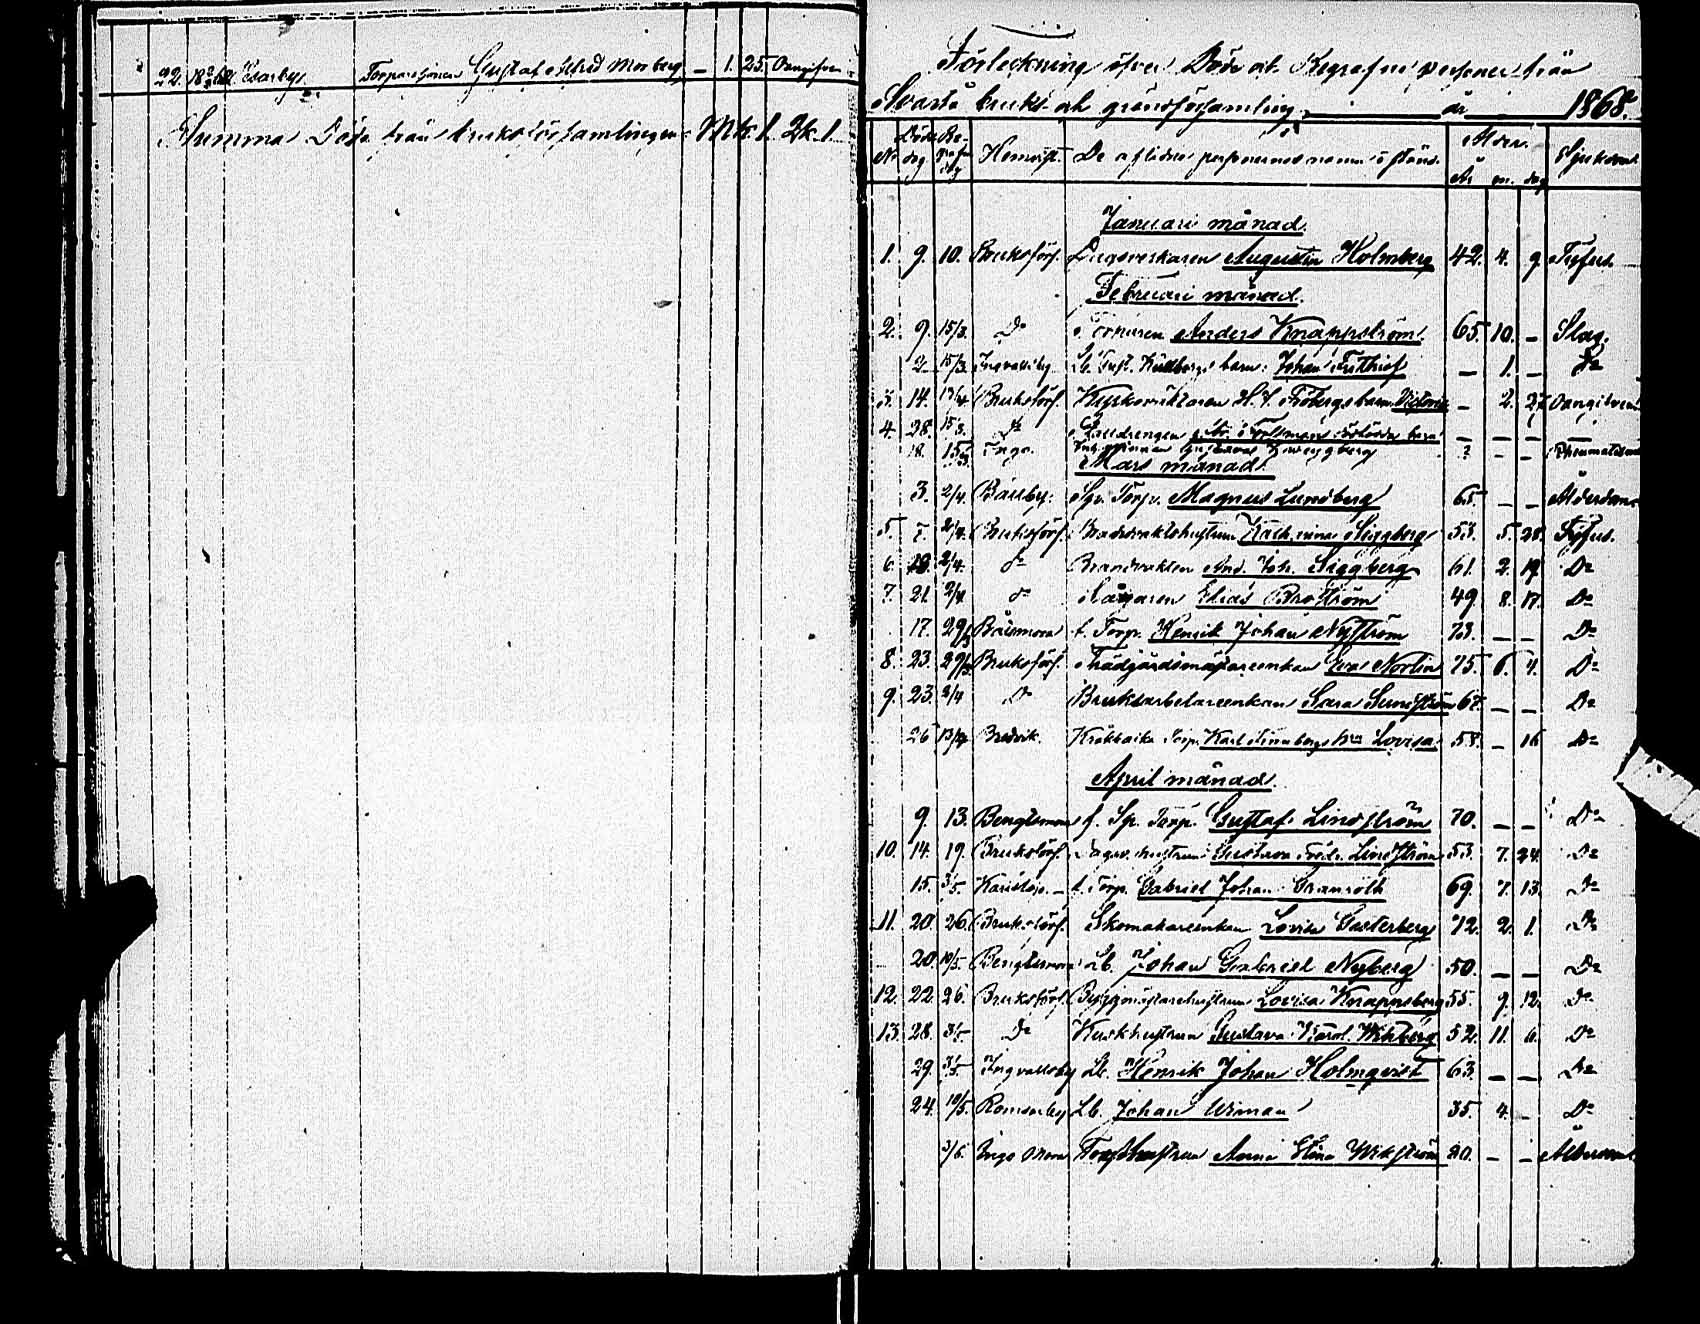 22. Torparesonen Gustaf Alfred Morberg — 1. 25. Oangifven
Summa Döde från bruksförsamlingen Mk. 1. Qk. 1.
Förteckning öfver Döde och Begrafne personer från
Svartå bruks och gränsförsamling år 1868.
No Döds dag Begrafn. dag Hemvist. De aflidne personernas namn o stånd. Ålder. Sjukdom
År m. dag
Januari månad.
1. 9. 10. Bruksförs. Augustin Holmberg 42. 4. 9. Tyfus.
Februari månad.
2. 9. 15/3. Do Torparen Anders Knappström 65. 10. — Slag.
2. 15/3 Ingvallsby Johan Frithiof — 1. — Do
3. 14. Bruksförs. Victoria — 2. 27. Oangifven
4. 28. 15/3. Do — — —
18. 15/3. Inga ? — — Rheumatism
Mars månad.
3. 2/4. Båseby. Torp. Magnus Lundberg 65. — — Ålderdom
5. 7. 2/4. Bruksförs. Brandvaktshustrun Katharina Siggberg 53. 5. 28. Tyfus.
6. 2/4. do Brandvakten And. Joh. Siggberg 61. 2. 19. Do
7. 21. 2/4 do Sågaren Elias Broström 49. 8. 17. Do
17. 29/3 Båsmora f. Torp. Henrik Johan Nyström 73. — — Do
8. 23. 29/3 Bruksförs. Trädgårdsmästareenkan Eva Norlin 75. 6. 4. Do
9. 23. 2/4 Do Bruksarbetareenkan Sara Sundström 67. — — Do
26 13/4 Bredvik. Torp. Karl hru Lovisa 58. — 16 Do
April månad.
9. 13. Bengtsmora f. Sp. Torp. Gustaf Lindström 70. — — Do
10. 14. 19. Bruksförs. hustrun Gustava Fredr. Lindström 53. 7. 24. Do
15. 3/5. Karislojo. — f. Torp. Gabriel Johan Granroth 69. 7. 13. Do
11. 20. 26. Bruksförs. Skomakareenkan Lovisa Gasterberg 72. 2. 1. Do
20. 10/5. Bengtsmora Lb. Johan Gabriel Nyberg 50. — — Do
12. 22. 26. Bruksförs. Byggmästarehustrun Lovisa Knappsberg 55. 9. 12. Do
13. 28. 3/5. Do Kuskhustrun Gustava Karol. Wikberg 52. 11. 6. Do
29. 3/5. Ingvallsby Lb. Henrik Johan Holmqvist 63. — — Do
24. 10/5. Romsarby Lb. Johan Wiman 35. 4. — Do
3/6. Mora Anna Stina Wikström 80. — — Ålderdom.